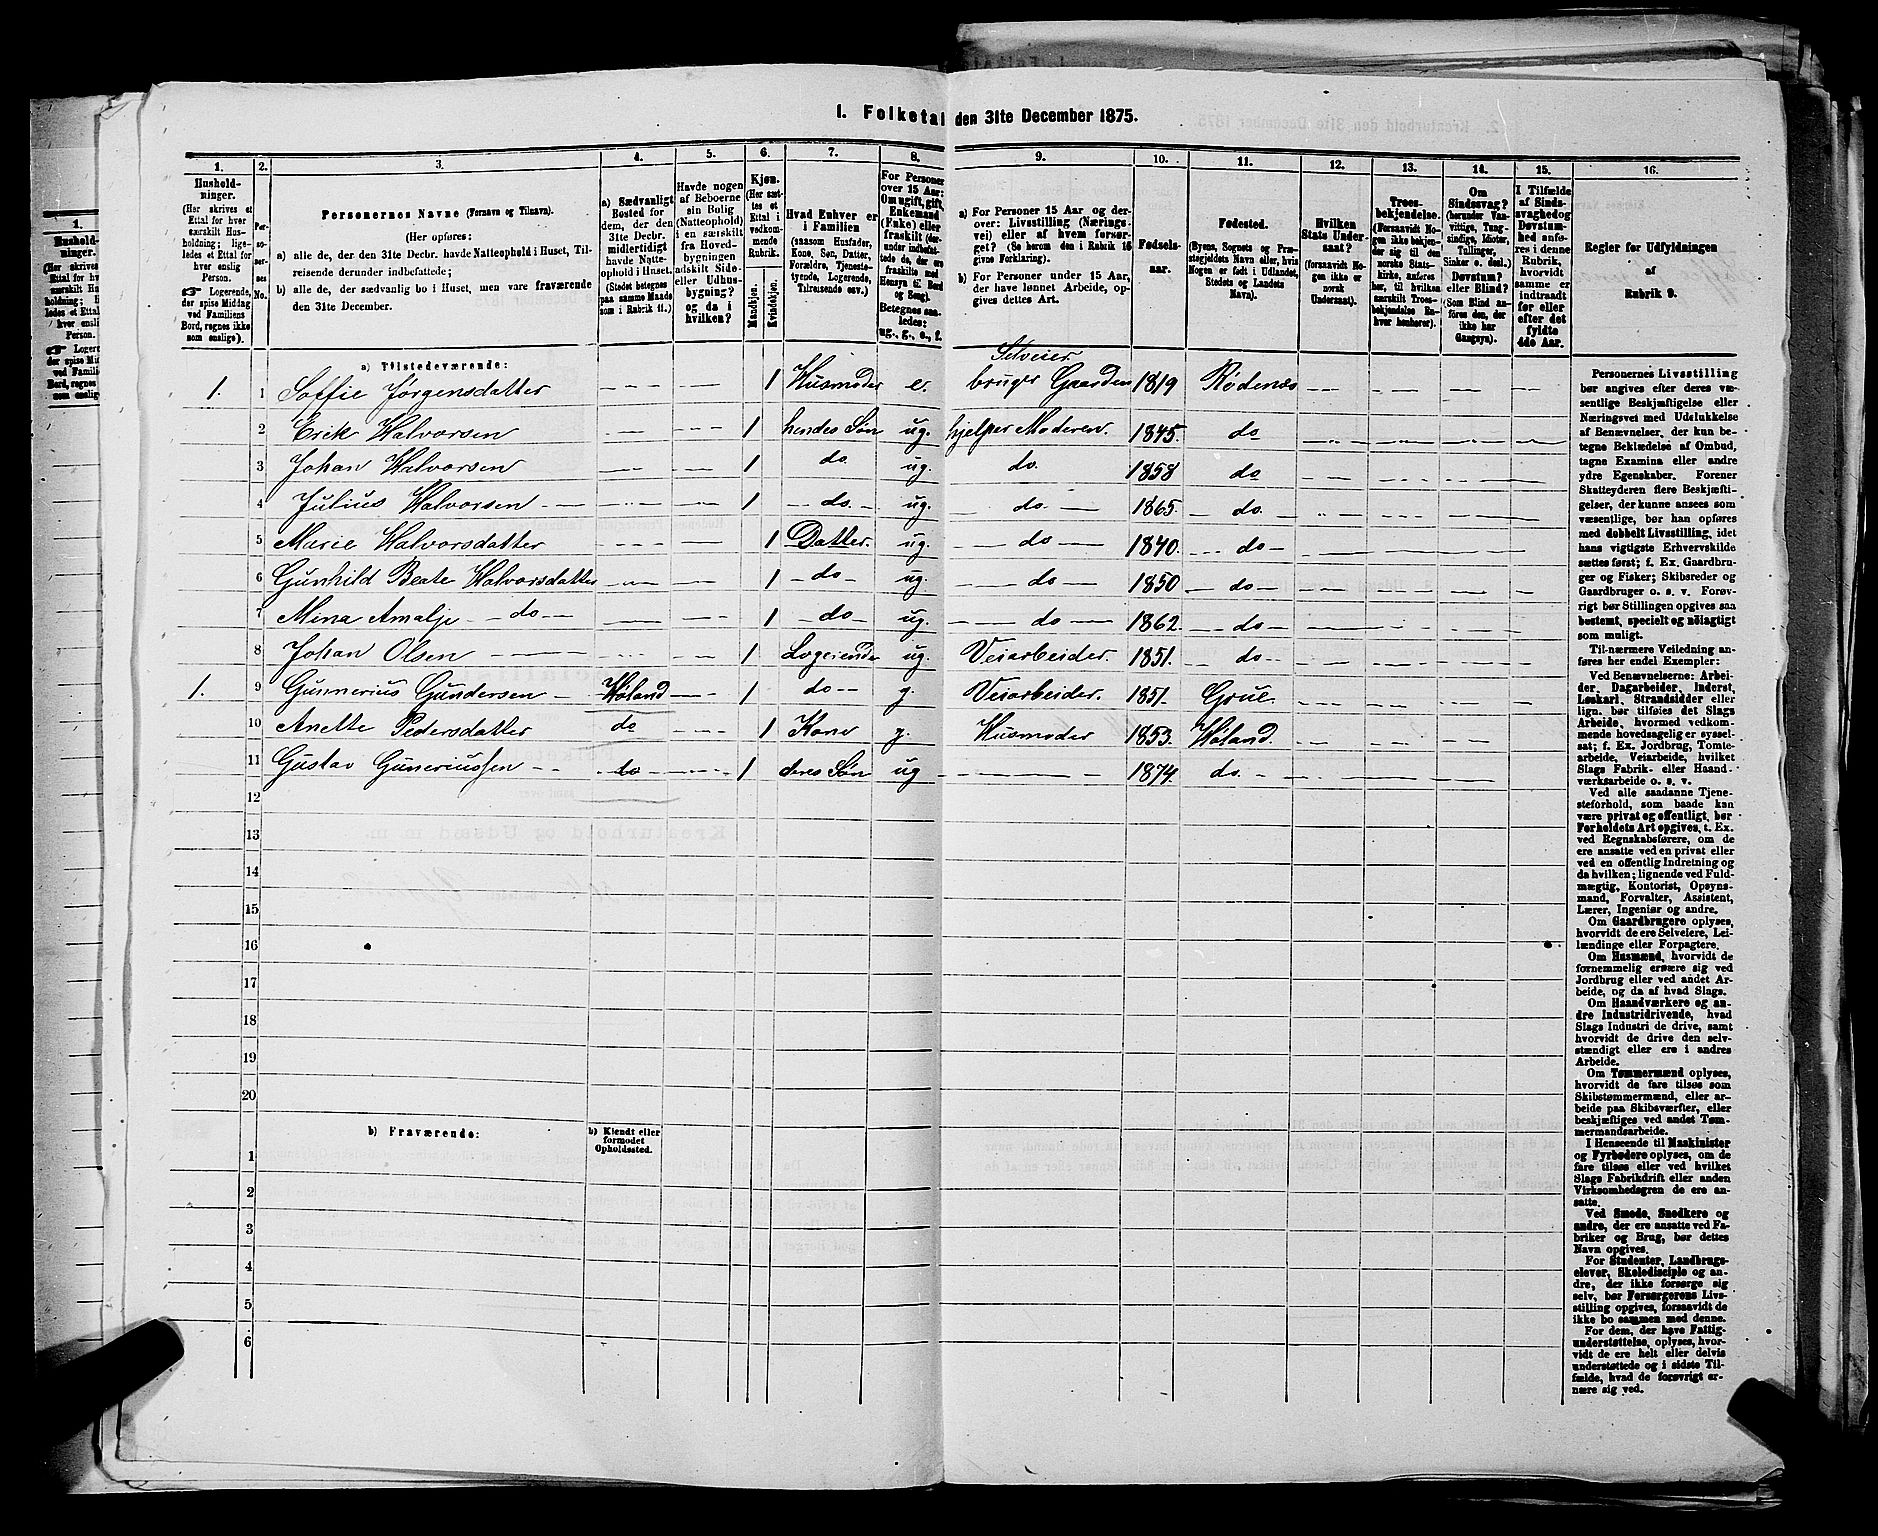 I. Folketal den 31te December 1875.
1. 2. 3. 4. 5. 6. 7. 8. 9. 10. 11. 12. 13. 14. 15. 16.
Hushold-
ninger.
(Her skrives et
Ettal for hver
særskilt Hus-
holdning; lige-
ledes et Ettal for
hver enslig
Person.
☛ Logerende,
der spise Middag
ved Familiens
Bord, regnes ikke
som enslige).
Per-
so-
ner-
nes
No.
Personernes Navne (Fornavn og Tilnavn).
(Her opføres:
a) alle de, der den 31te Decbr. havde Natteophold i Huset, Til-
reisende derunder indbefattede;
b) alle de, der sædvanlig bo i Huset, men vare fraværende
den 31te December.
a) Sædvanligt
Bosted for
dem, der den
31te Decbr.
midlertidigt
havde Natte-
ophold i Huset.
(Stedet betegnes
paa samme Maade
som i Rubrik 11.)
Havde nogen
af Beboerne
sin Bolig
(Natteophold)
i en særskilt
fra Hoved-
bygningen
adskilt Side-
eller Udhus-
bygning?
og da i
hvilken?
Kjøn.
(Her sæt-
tes et
Ettal i
vedkom-
mende
Rubrik.
Mandkjøn.
Kvindekjøn.
Hvad Enhver er
i Familien
(saasom Husfader,
Kone, Søn, Datter,
Forældre, Tjeneste-
tyende, Logerende,
Tilreisende osv.)
For Personer
over 15 Aar:
Om ugift, gift,
Enkemand
(Enke) eller
fraskilt (der-
under indbefat-
tede de, der ere
fraskilte med
Hensyn til Bord
og Seng).
Betegnes saa-
ledes:
ug., g., e., f.
a) For Personer 15 Aar og der-
over: Livsstilling (Nærings-
vei) eller af hvem forsør-
get? (Se herom den i Rubrik 16
givne Forklaring).
b) For Personer under 15 Aar,
der have lønnet Arbeide, op-
gives dettes Art.
Fødsels-
aar.
Fødested.
(Byens, Sognets og Præ-
stegjeldets Navn eller, hvis
Nogen er født i Udlandet,
Stedets og Landets
Navn).
Hvilken
Stats Under-
saat?
(forsaavidt No-
gen ikke er
norsk
Undersaat).
Troes-
bekjendelse.
(Forsaavidt No-
gen ikke bekjen-
der sig til den
norske Stats-
kirke, anføres
her, til hvilken
særskilt Troes-
bekjendelse En-
hver henhører).
Om
Sindssvag?
(herunder Van-
vittige, Tung-
sindige, Idioter,
Tullinger,
Sinker o. desl.)
Døvstum?
eller Blind?
(Som Blind an-
føres den, der
ikke har
Gangsyn).
I Tilfælde
af Sinds-
svaghed og
Døvstum-
hed anfø-
res i denne
Rubrik,
hvorvidt
samme er
indtraadt
før eller
efter det
fyldte
4de Aar.
Regler for Udfyldningen
af
Rubrik 9.
a) Tilstedeværende:
Selveier
1. 1 Soffie Jørgensdatter 1 Husmoder e. bruger Gaarden 1819 Rødenæs
2 Erik Halvorsen 1 hendes Søn ug. hjelper Moderen. 1845. do
3 Johan Halvorsen 1 do. ug. do. 1858 do
4 Julius Halvorsen 1 do. ug. do. 1865. do.
5 Marie Halvorsdatter 1 Datter. ug. do 1840. do
6 Gunhild Beate Halvorsdatter 1 do ug. do 1850 do
7 Mina Amalje do 1 do ug. do 1862. do
8 Johan Olsen 1 Logerende ug. Veiarbeider. 1851. do
1. 9 Gunnerius Gundersen Høland 1 do g. Veiarbeider. 1851. Grue
10 Anette Pedersdatter do 1 Kone g. Husmoder 1853. Høland.
11 Gustav Guneriussen do 1 deres Søn ug 1874. do.
12
13
14
15
16
17
18
19
20
b) Fraværende:
b) Kjendt eller
formodet
Opholdssted.
1
2
3
4
5
6
Personernes Livsstilling
bør angives efter deres væ-
sentlige Beskjæftigelse eller
Næringsvei med Udelukkelse
af Benævnelser, der kun be-
tegne Beklædelse af Ombud,
tagne Examina eller andre
ydre Egenskaber. Forener
Skatteyderen flere Beskjæfti-
gelser, der kunne ansees som
væsentlige, bør han opføres
med dobbelt Livsstilling, idet
hans vigtigste Erhvervskilde
sættes først; f. Ex. Gaardbru-
ger og Fisker; Skibsreder og
Gaardbruger o. s. v. Forøv-
rigt bør Stillingen opgives saa
bestemt, specielt og nøiagtigt
som muligt.
Til nærmere Veiledning an-
føres her endel Exempler:
Ved Benævnelserne: Arbei-
der, Dagarbeider, Inderst,
Løskarl, Strandsidder eller
lign. bør tilføies det Slags
Arbeide, hvormed vedkom-
mende hovedsagelig er syssel-
sat; f. Ex. Jordbrug, Tomte-
arbeide, Veiarbeide, hvilket
Slags Fabrik- eller Haand-
værksarbeide o. s. v.
Ved alle saadanne Tjene-
steforhold, som baade kan
være privat og offentligt, bør
Forholdets Art opgives, t. Ex.
ved Regnskabsførere, om de
ere ansatte ved en privat eller
ved en offentlig Indretning og
da hvilken; lignende ved Fuld-
mægtig, Kontorist, Opsyns-
mand, Forvalter, Assistent,
Lærer, Ingeniør og andre.
Om Gaardbrugere oplyses,
hvorvidt de ere Selveiere, Lei-
lændinge eller Forpagtere.
Om Husmænd, hvorvidt de
fornemmelig ernære sig ved
Jordbrug eller ved andet Ar-
beide, og da af hvad Slags.
Om Haandværkere og an-
dre Industridrivende, hvad
Slags Industri de drive, samt
hvorvidt de drive den selv-
stændigt eller ere i andres
Arbeide.
Om Tømmermænd oplyses,
hvorvidt de fare tilsøs som
Skibstømmermænd, eller ar-
beide paa Skibsværfter, eller
beskjæftiges ved andet Tøm-
mermandsarbeide.
I Henseende til Maskinister
og Fyrbødere oplyses, om de
fare tilsøs eller ved hvilket
Slags Fabrikdrift eller anden
Virksomhedsgren de ere an-
satte.
Ved Smede, Snedkere og
andre, der ere ansatte ved Fa-
briker og Brug, bør dettes
Navn opgives.
For Studenter, Landbrugs-
elever, Skoledisciple og an-
dre, der ikke forsørge sig
selv, bør Forsørgerens Livs-
stilling opgives, forsaavidt de
ikke bo sammen med denne.
For dem, der have Fattig-
understøttelse, oplyses, hvor-
vidt de ere helt eller delvis
understøttede og i sidste Til-
fælde, hvad de forøvrigt er-
nære sig ved.